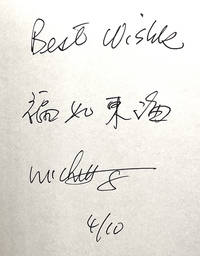 Best Wishes
福如東海
4/10